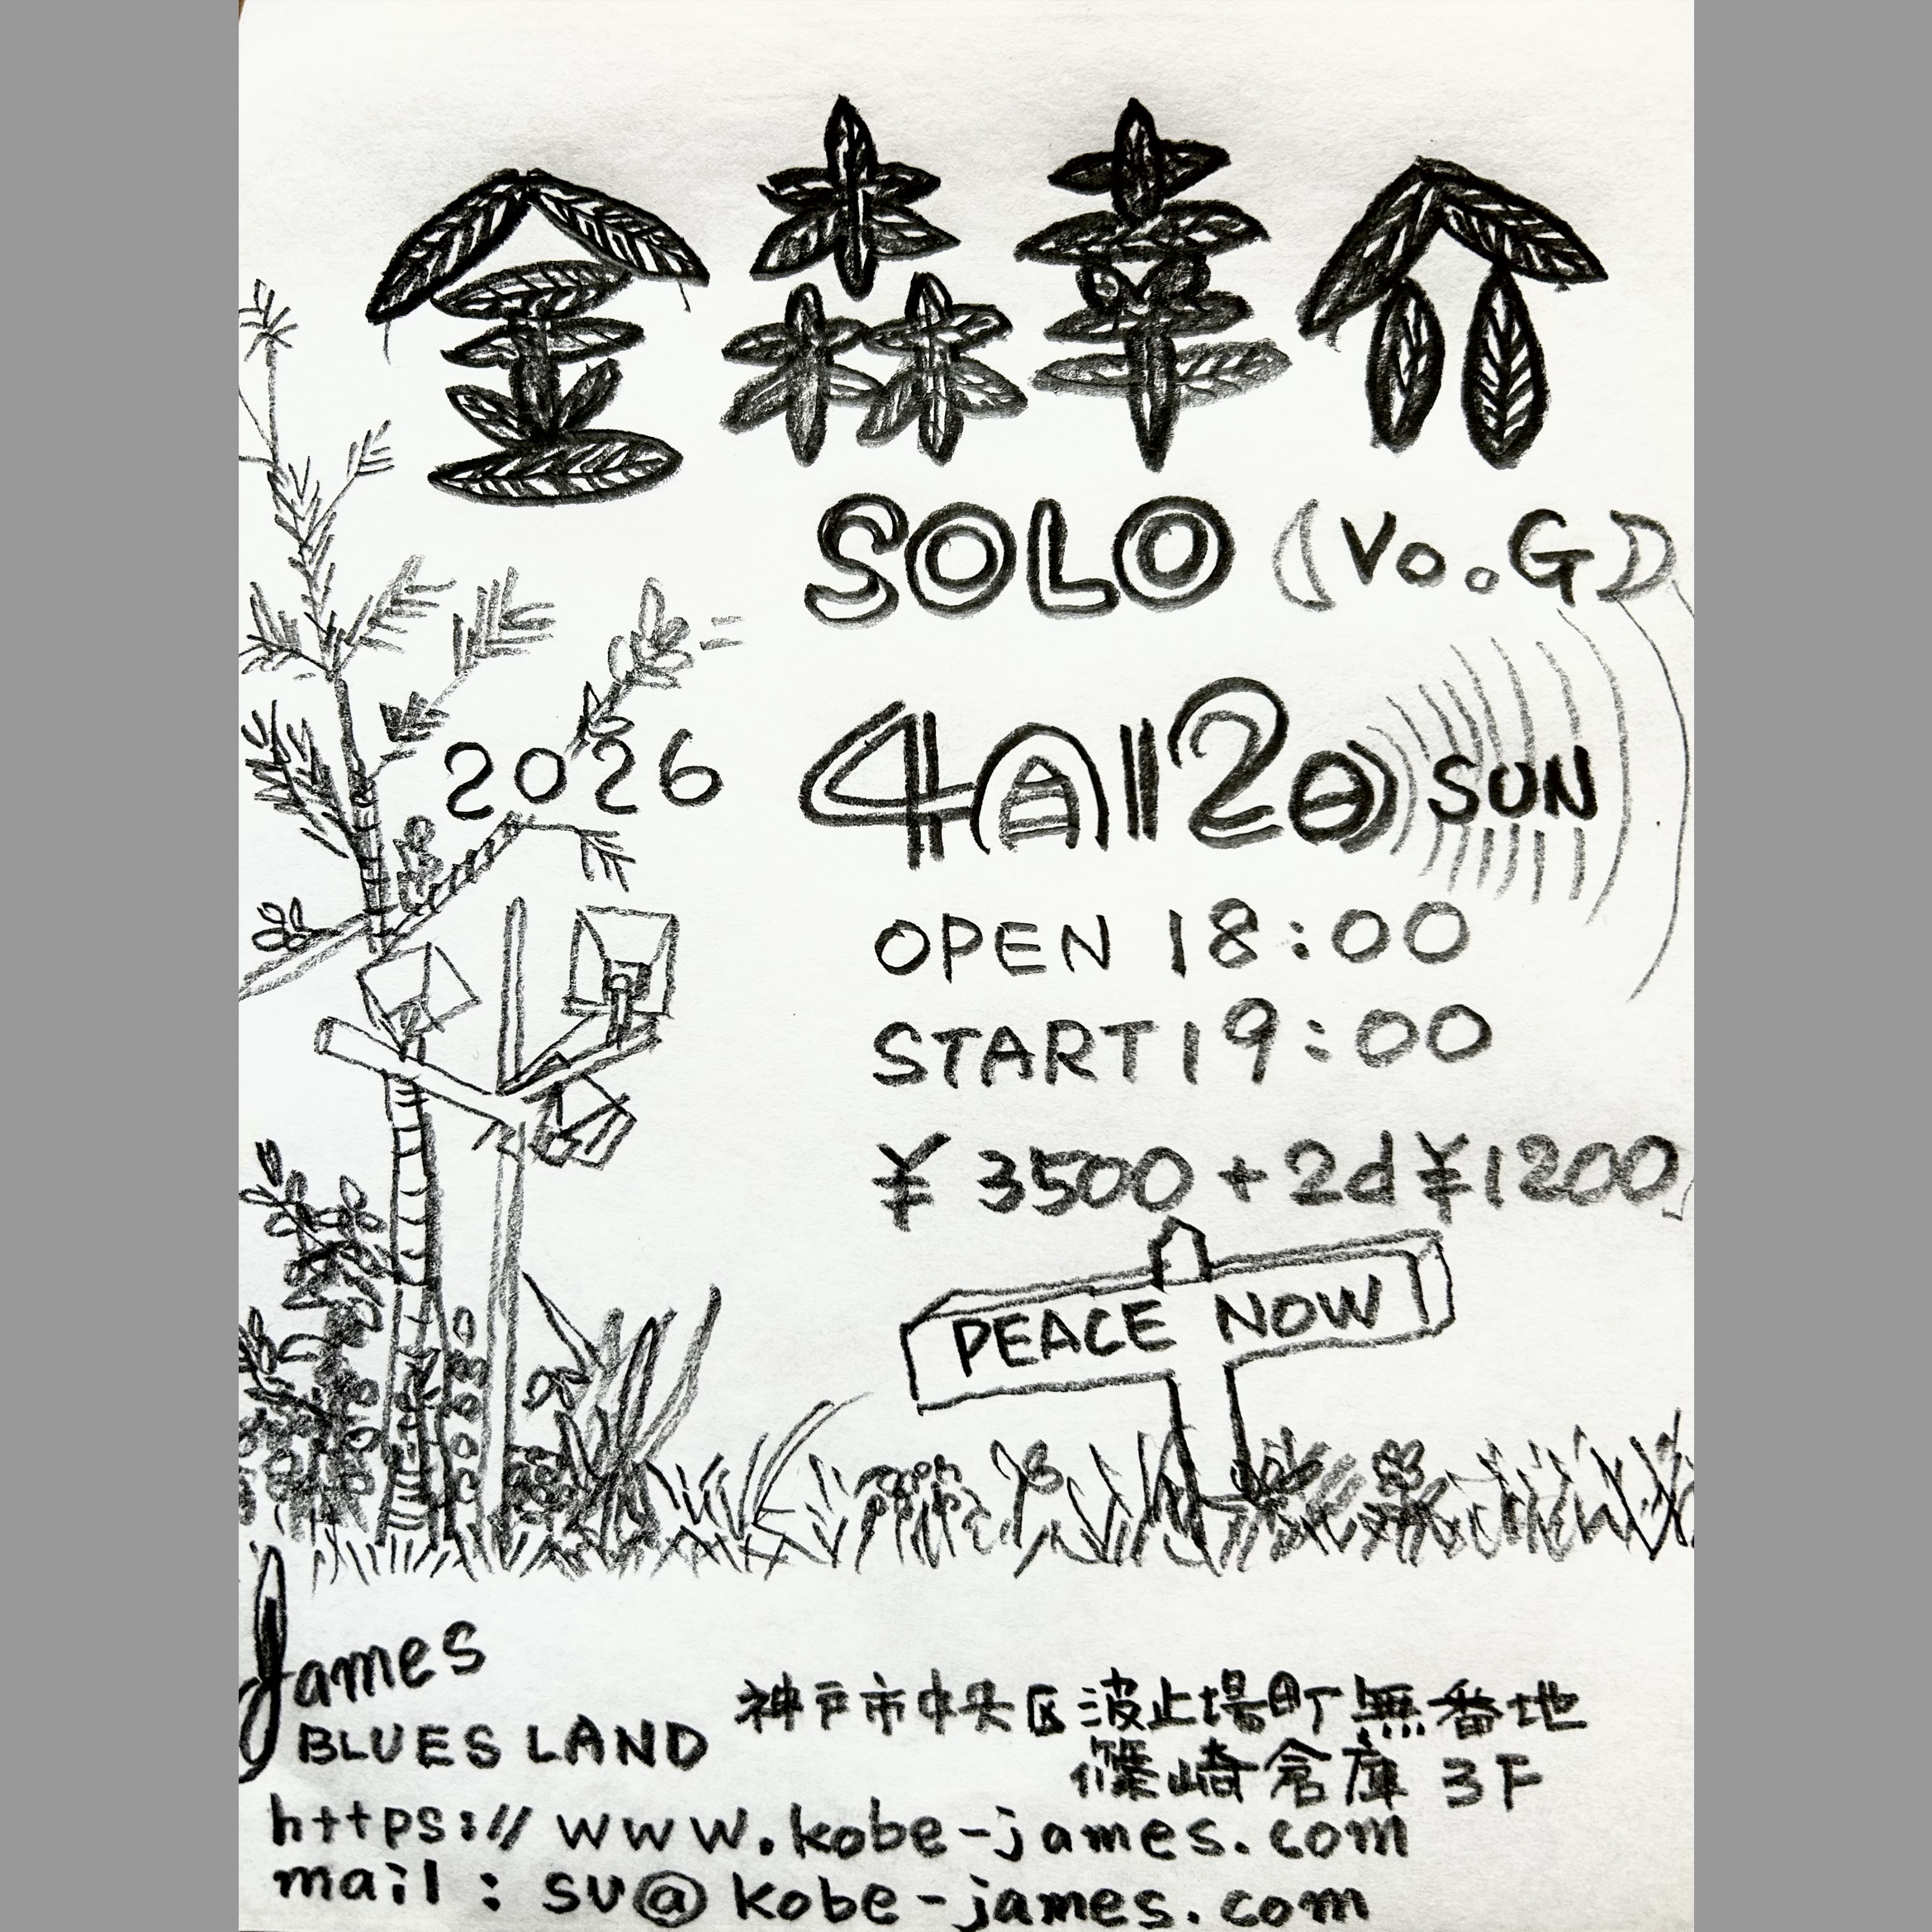 金森幸介
SOLO (Vo.G)
2026 4月12日 SUN
OPEN 18:00
START 19:00
¥3500+2d¥1200
PEACE NOW
James
BLUES LAND
神戸市中央区波止場町無番地
篠崎倉庫 3F
https://www.kobe-james.com
mail : su@kobe-james.com